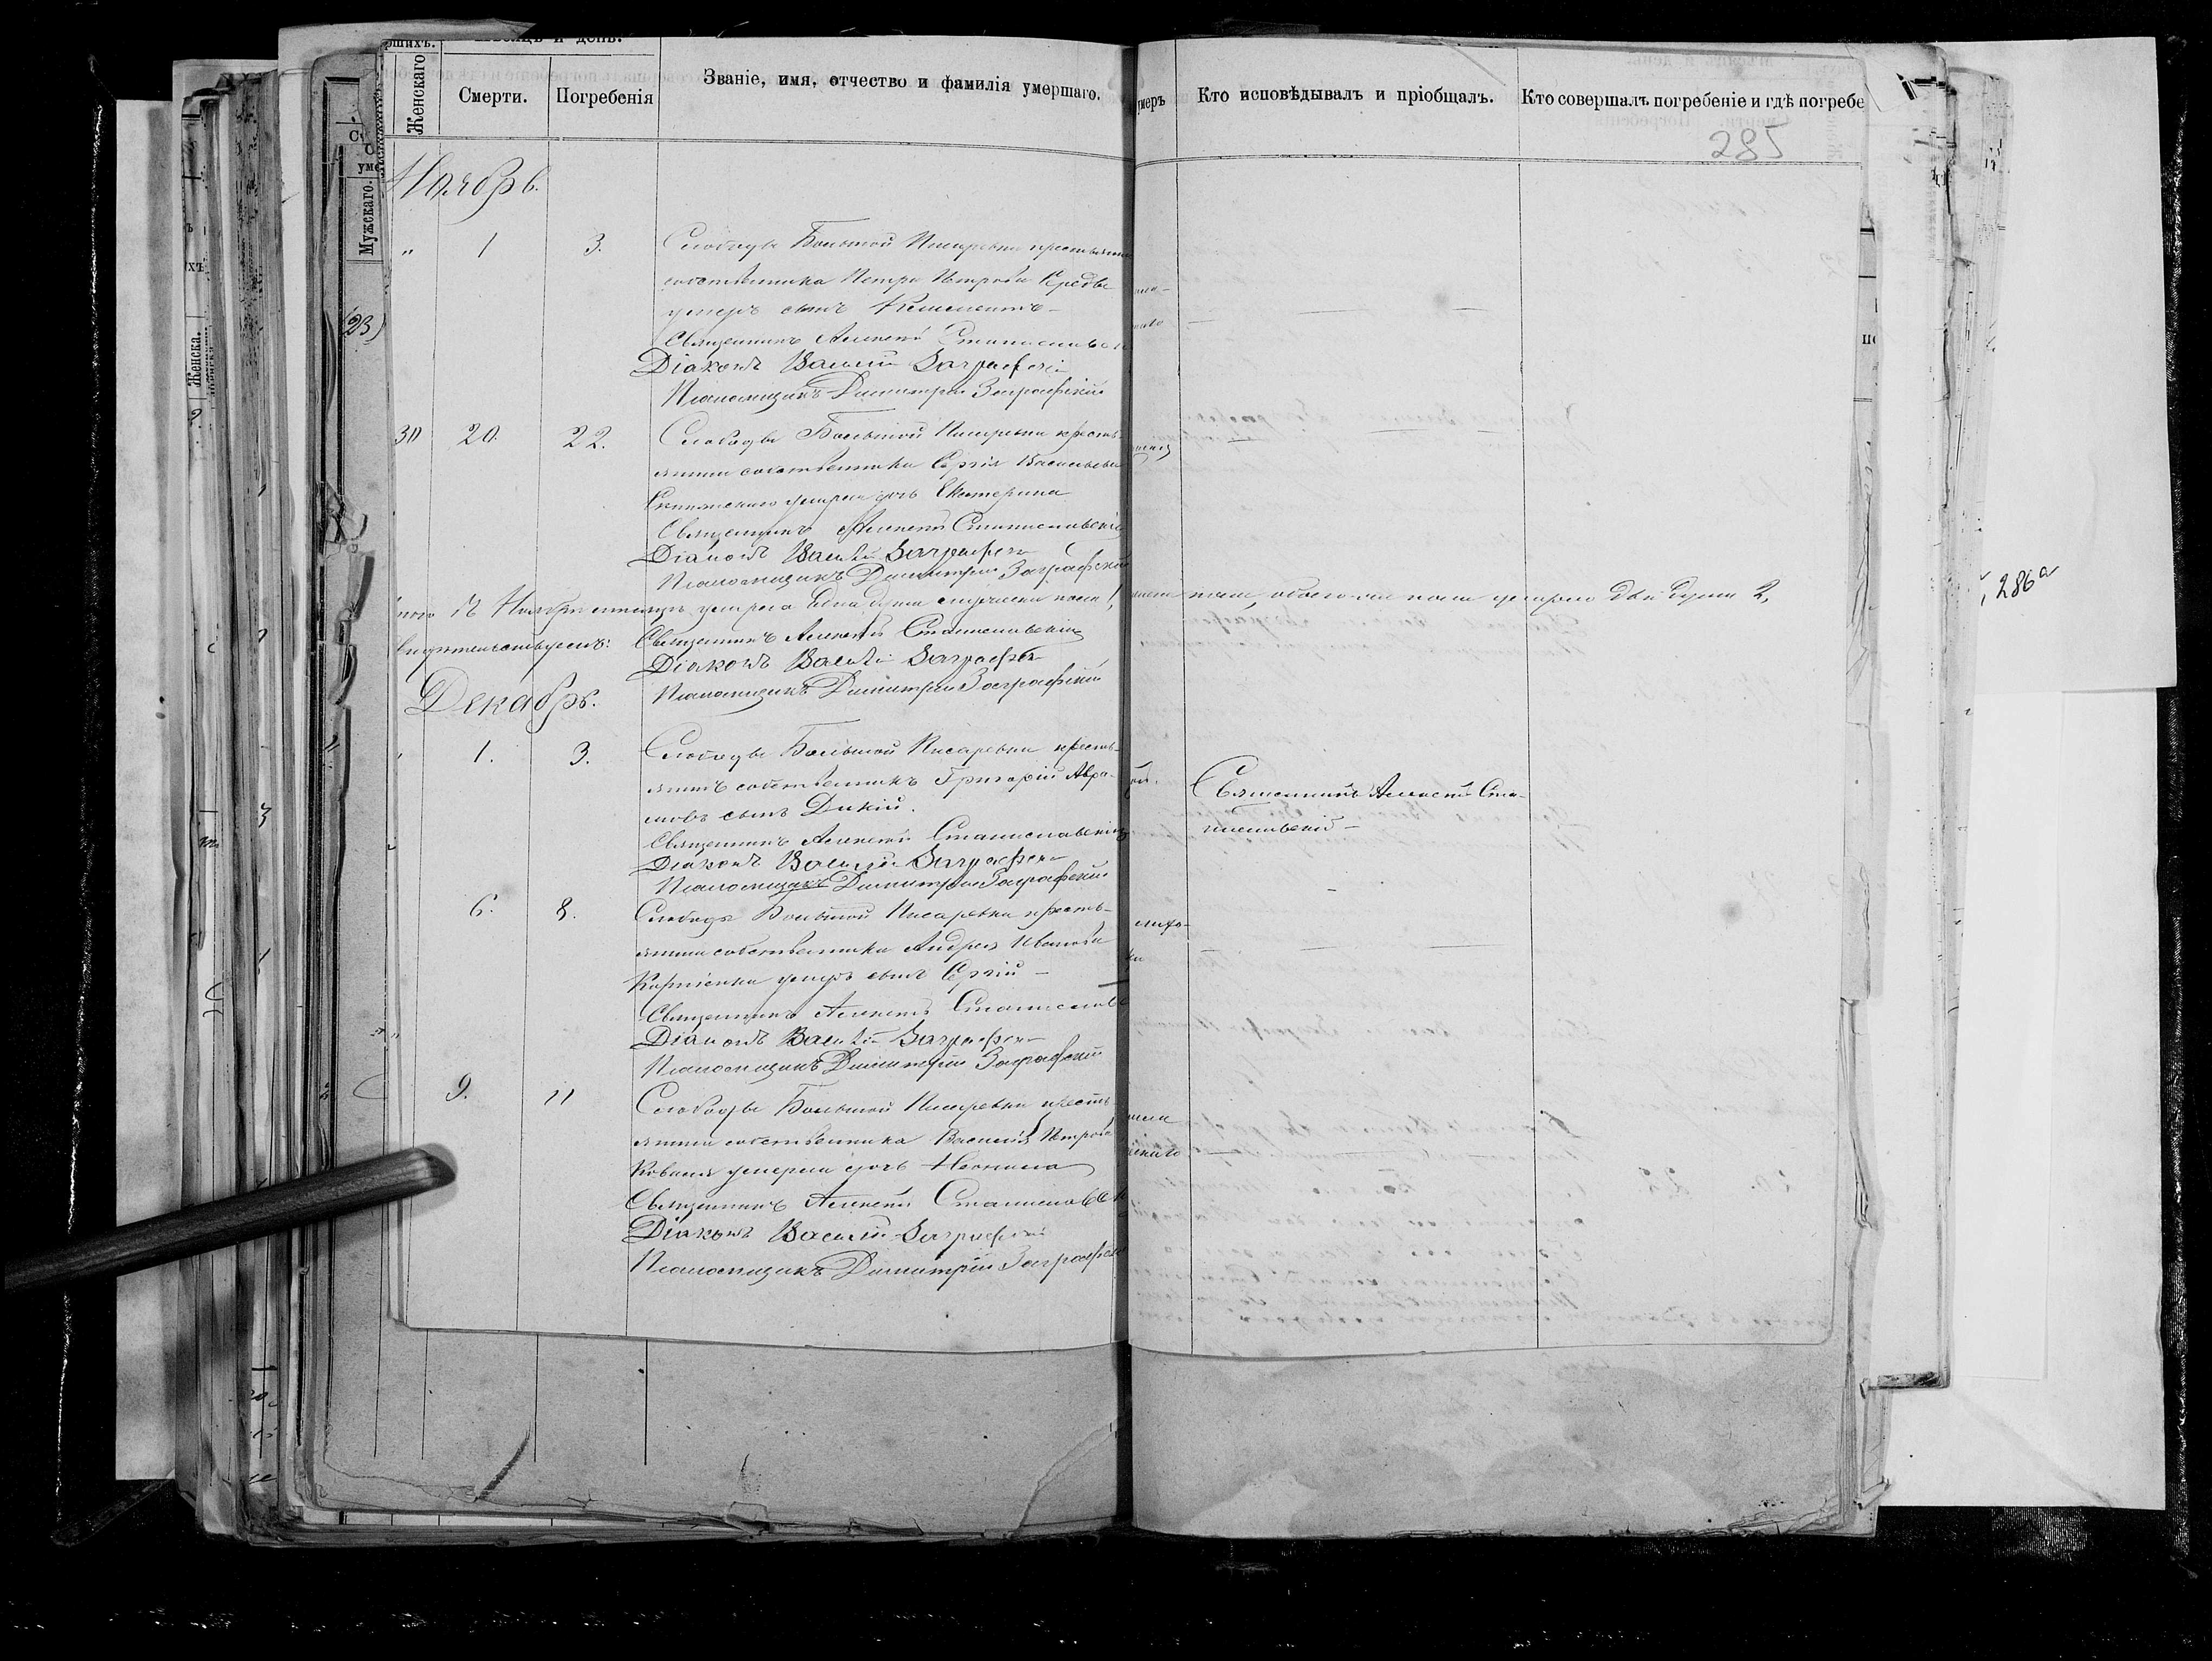 Женскаго
Смерти.
Погребенія
Званіе, имя, отчество и фамилія умершаго.
умеръ
Кто исповѣдывалъ и пріобщалъ.
Кто совершалъ погребеніе и гдѣ погребе
285
Мужскаго.
Ноябрь.
1 3. Слободы Большой Писаревки крестьянина
собственника Петра Петрова
умеръ сынъ Климентъ
Священникъ Алексѣй Станиславскі
Діаконъ Василій Заграфскій
Псаломщикъ Димитрій Заграфскій
30 20. 22. Слободы Большой Писаревки кресть-
янина собственника Сергія Васильева
умерла дочь Екатерина
Священникъ Алексѣй Станиславскій
Діаконъ Василій Заграфскій
Псаломщикъ Димитрій Заграфскій
въ Ноябрѣ мѣсяцѣ умерла одна душа мужеска пола 1, пола, обоего пола умерло двѣ души 2,
Свидѣтельствуемъ: Священникъ Алексѣй Станиславскій
Діаконъ Василій Заграфскій
Псаломщикъ Димитрій Заграфскій
Декабрь.
1. 3. Слободы Большой Писаревки кресть-
янинъ собственникъ Григорій Авра-
мовъ сынъ Дикій.
Священникъ Алексѣй Станиславскій
Діаконъ Василій Заграфскій
Псаломщикъ Димитрій Заграфскій
Священникъ Алексѣй Ста-
ниславскій
6. 8. Слободы Большой Писаревки кресть-
янина собственника Андрея Иванова
Корніенка умеръ сынъ Сергій
Священникъ Алексѣй Станиславс
Діаконъ Василій Заграфскій
Псаломщикъ Димитрій Заграфскій
9. 11 Слободы Большой Писаревки кресть
янина собственника Василія Петрова
Коваля умерла дочь Неонила
Священникъ Алексѣй Станиславск
Діаконъ Василій Заграфскій
Псаломщикъ Димитрій Заграфск
286а
23)